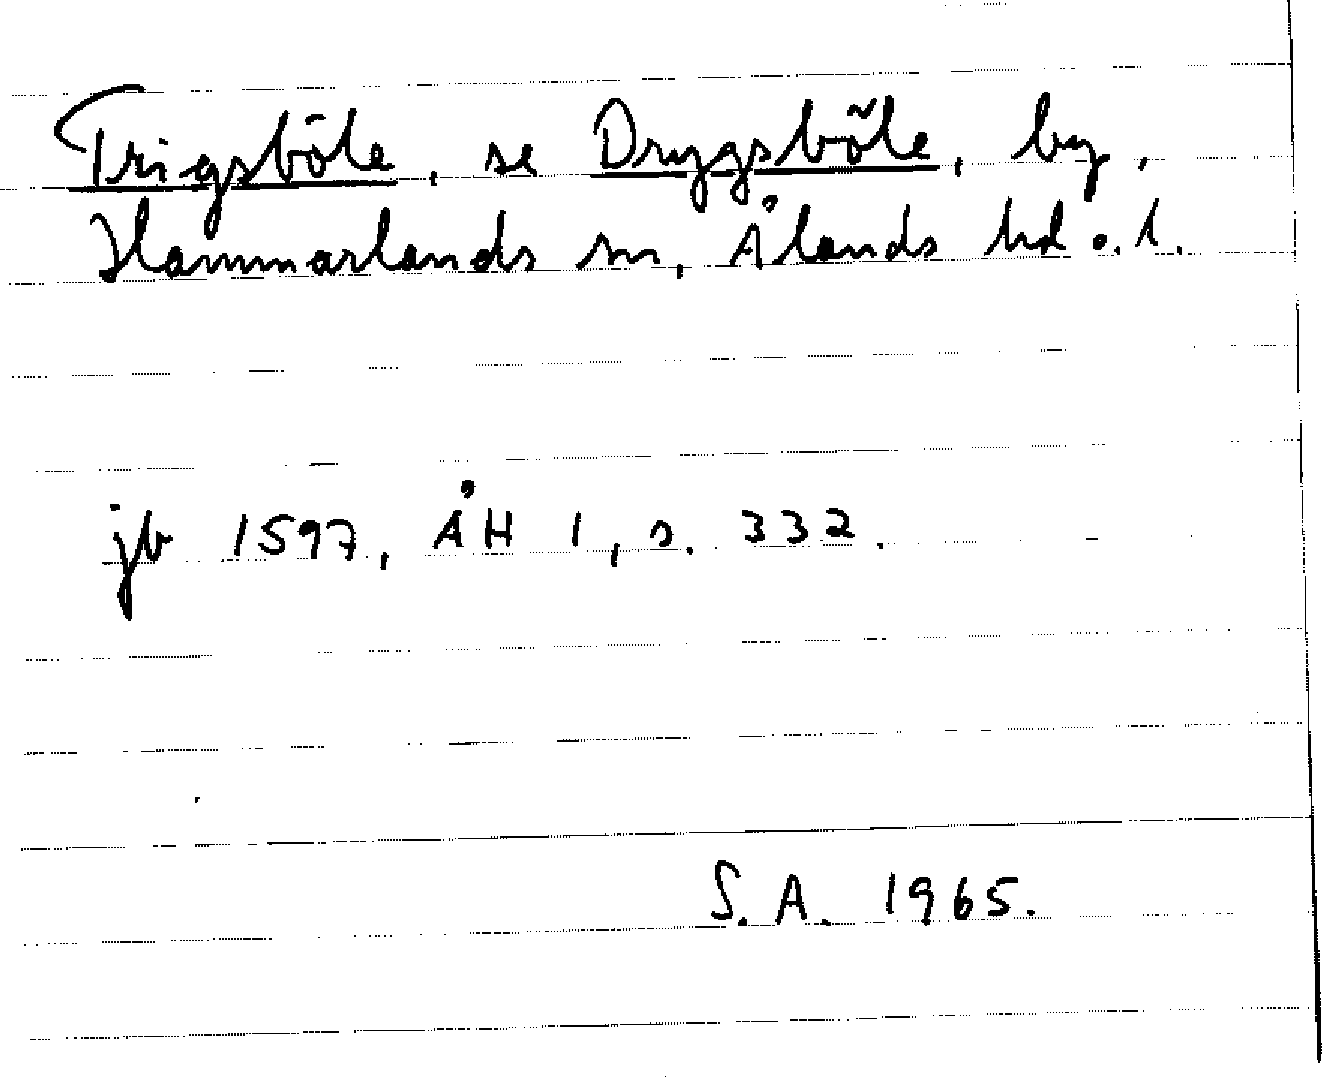 Trigsböle, se Drygsböle, by,
Hammarlands sn, Ålands hd o. l.
jb 1597, ÅH 1, s. 332.
S. A. 1965.